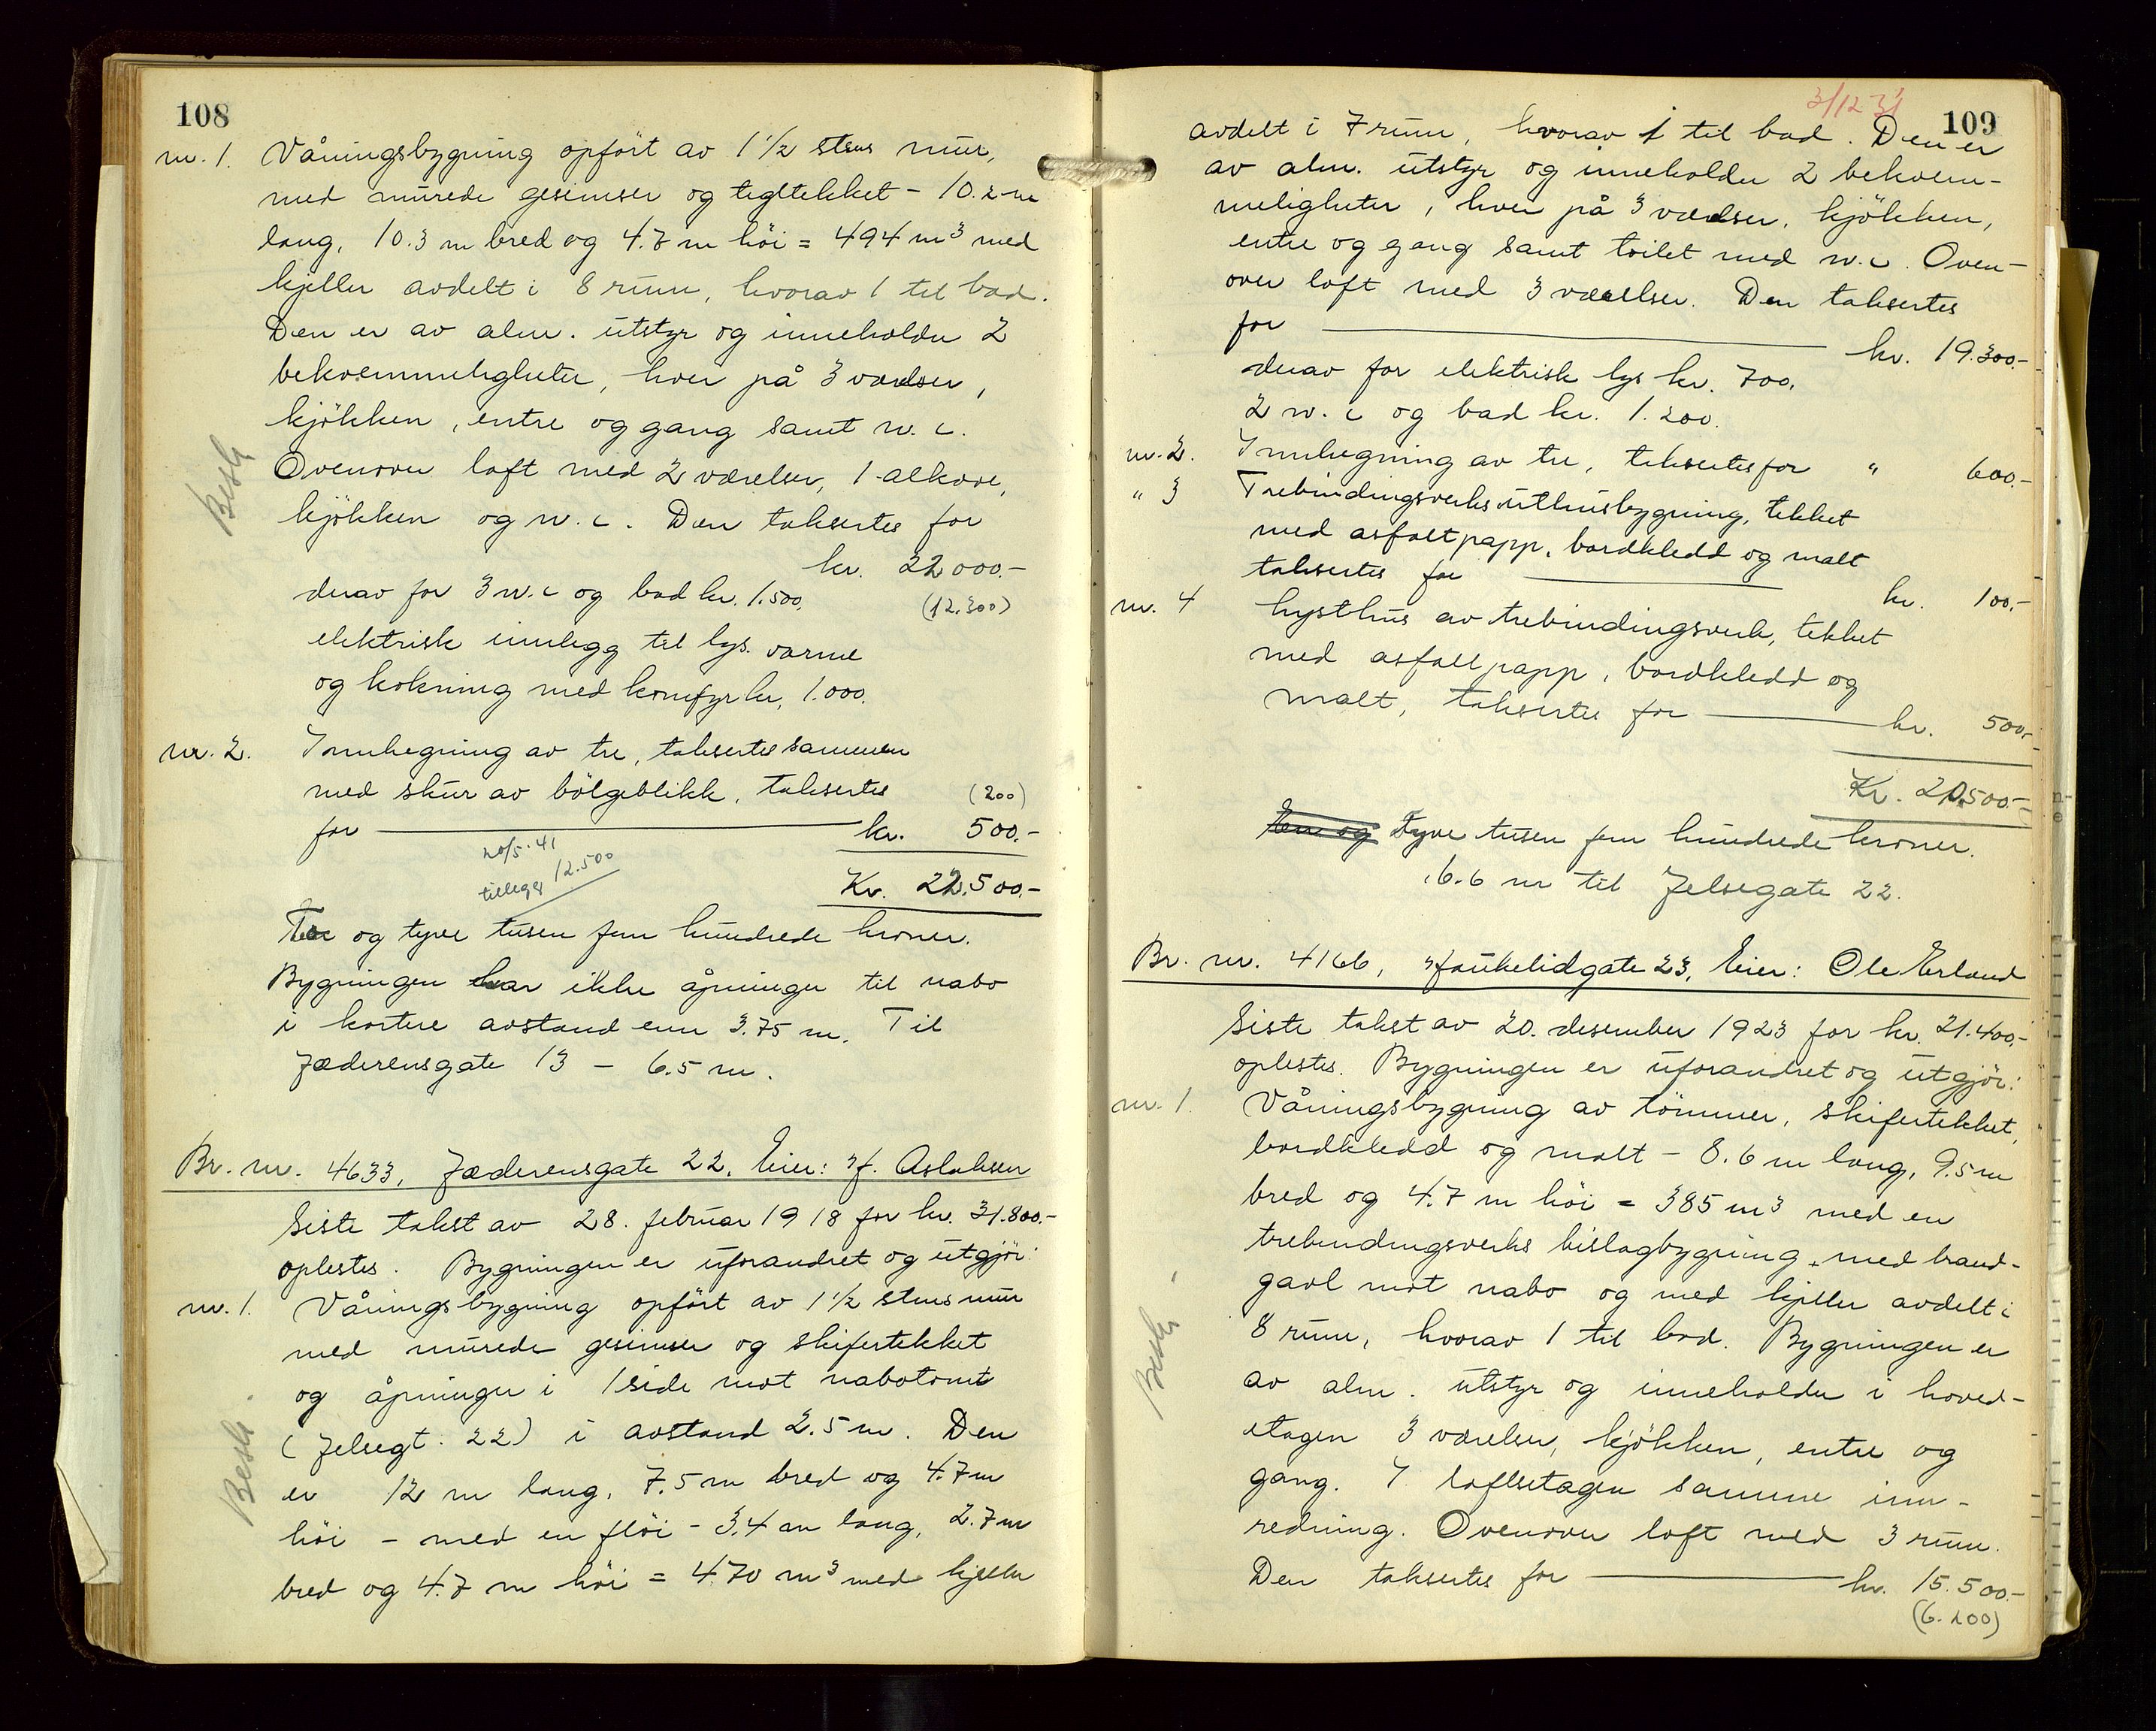 108
nr. 1. Våningsbygning opført av 1 1/2 stens mur,
med murede gesimser og tegltekket - 10.2 m
lang, 10.3 m bred og 4.7 m höi = 494 m3 med
kjeller avdelt i 8 rum, hvorav 1 til bad.
Den er av alm. utstyr og inneholder 2
bekvemmeligheter, hver på 3 værelser,
kjökken, entre og gang samt w.c.
Besk
Ovenover loft med 2 værelser, 1 alkove,
kjökken og w.c. Den taksertes for
kr. 22 000.-
derav for 3 w.c og bad kr. 1.500. (12.300)
elektrisk innlegg til lys. varme
og kokning med komfyr kr. 1.000.
nr. 2. Innhegning av tre, taksertes sammen
med skur av bölgeblikk, taksertes (200)
for kr. 500.-
20/5-41
tillegg 12.500
Kr. 22.500.-
To og tyve tusen fem hundrede kroner.
Bygningen har ikke åpninger til nabo
i kortere avstand enn 3.75 m. Til
Jæderensgate 13 - 6.5 m.
Br. nr. 4633, Jæderensgate 22, Eier: Aslaksen
Siste takst av 28. februar 1918 for kr. 31.800.-
oplestes. Bygningen er uforandret og utgjör:
nr. 1. Våningsbygning opfört av 1 1/2 stens mur
med murede gesimser og skifertekket
og åpninger i 1 side mot nabotomt
(Jelsegt. 22) i avstand 2.5 m. Den
Besk
er 12 m lang, 7.5 m bred og 4.7 m
höi - med en flöi - 3.4 m lang, 2.7 m
bred og 4.7 m höi = 470 m3 med kjeller
3/12 31
109
avdelt i 7 rum, hvorav 1 til bad. Den er
av alm. utstyr og inneholder 2 bekvem-
meligheter, hver på 3 værelser, kjökken,
entre og gang samt toilet med w.c. Oven-
over loft med 3 værelser. Den taksertes
for kr. 19.300.-
derav for elektrisk lys kr. 700.
2 w.c og bad kr. 1.200.
nr. 2. Innhegning av tre, taksertes for " 600.-
" 3 Trebindingsverks uthusbygning, tekket
med asfaltpapp, bordkledd og malt
taksertes for kr. 100.-
nr. 4 Lysthus av trebindingsverk, tekket
med asfaltpapp, bordkledd og
malt, taksertes for kr. 500.-
Kr. 20.500.-
En og Tyve tusen fem hundrede kroner.
6.6 m til Jelsegate 22.
Br. nr. 4166, Haukelidgate 23, Eier: Ole Erland
Siste takst av 20. desember 1923 for kr. 21.400.-
oplestes. Bygningen er uforandret og utgjör:
nr. 1. Våningsbygning av tömmer, skifertekket,
bordkledd og malt - 8.6 m lang, 9.5 m
bred og 4.7 m höi = 385 m3 med en
trebindingsverks bislagbygning, med brand-
gavl mot nabo og med kjeller avdelt i
8 rum, hvorav 1 til bad. Bygningen er
Besk
av alm. utstyr og inneholder i hoved-
etagen 3 værelser, kjökken, entre og
gang. I loftsetagen samme inn-
redning. Ovenover loft med 3 rum.
Den taksertes for kr. 15.500.-
(6.200)